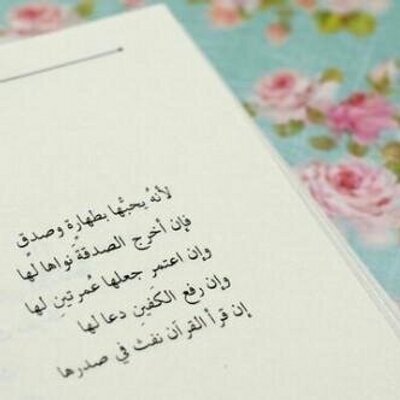 لأنهُ يحبُّها بطهارة وصدق
فإن أخرج الصدقةَ نواها لها
وإن اعتمر جعلها عُمرتينِ لها
وإن رفع الكَفينِ دعا لها
إن قرأ القرآن نفث في صدرها